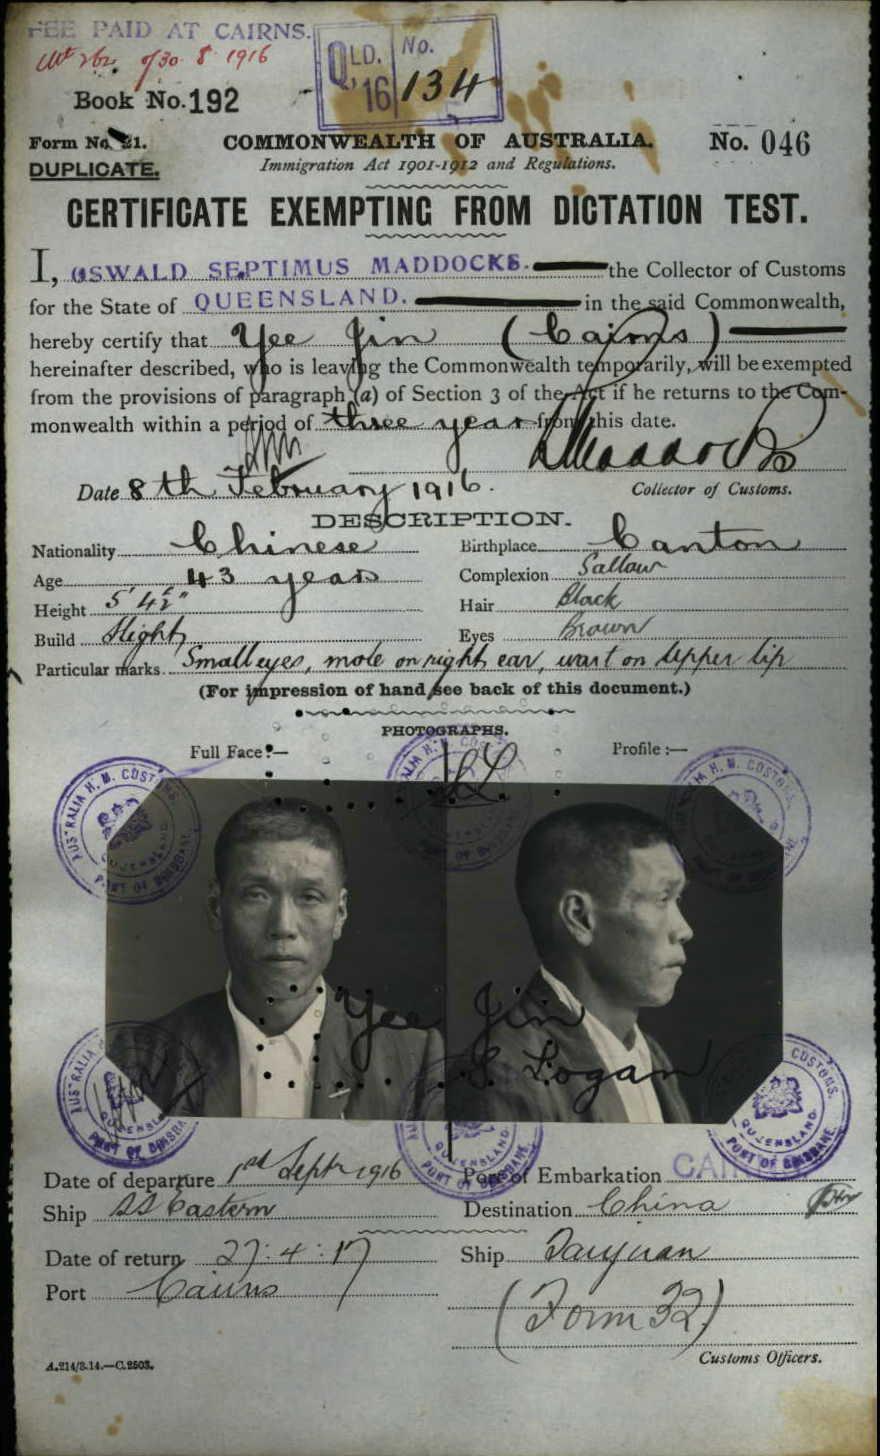 FEE PAID AT CAIRNS.
of 30. 8. 1916
QLD. No.
'16 134
Book No. 192
Form No. 21.
COMMONWEALTH OF AUSTRALIA.
No. 046
DUPLICATE.
Immigration Act 1901-1912 and Regulations.
CERTIFICATE EXEMPTING FROM DICTATION TEST.
I, OSWALD SEPTIMUS MADDOCKS. the Collector of Customs
for the State of QUEENSLAND. in the said Commonwealth,
hereby certify that Yee Jin (Cairns)
hereinafter described, who is leaving the Commonwealth temporarily, will be exempted
from the provisions of paragraph (a) of Section 3 of the Act if he returns to the Com-
monwealth within a period of three years from this date.
Maddocks
Date 8th February 1916.
Collector of Customs.
DESCRIPTION.
Nationality Chinese Birthplace Canton
Age 43 years Complexion Sallow
Height 5' 4½" Hair Black
Build Slight Eyes Brown
Particular marks Small eyes, mole on right ear, wart on upper lip
(For impression of hand see back of this document.)
PHOTOGRAPHS.
Full Face:— Profile:—
AUSTRALIA H. M. CUSTOMS. QUEENSLAND PORT OF BRISBANE
Yee Jin
S. Logan
Date of departure 1st Septr 1916 Port of Embarkation CAI
Ship SS Eastern Destination China
Date of return 27:4:17 Ship Taiyuan
Port Cairns
(Form 32)
A.214/3.14.—C.2503. Customs Officers.